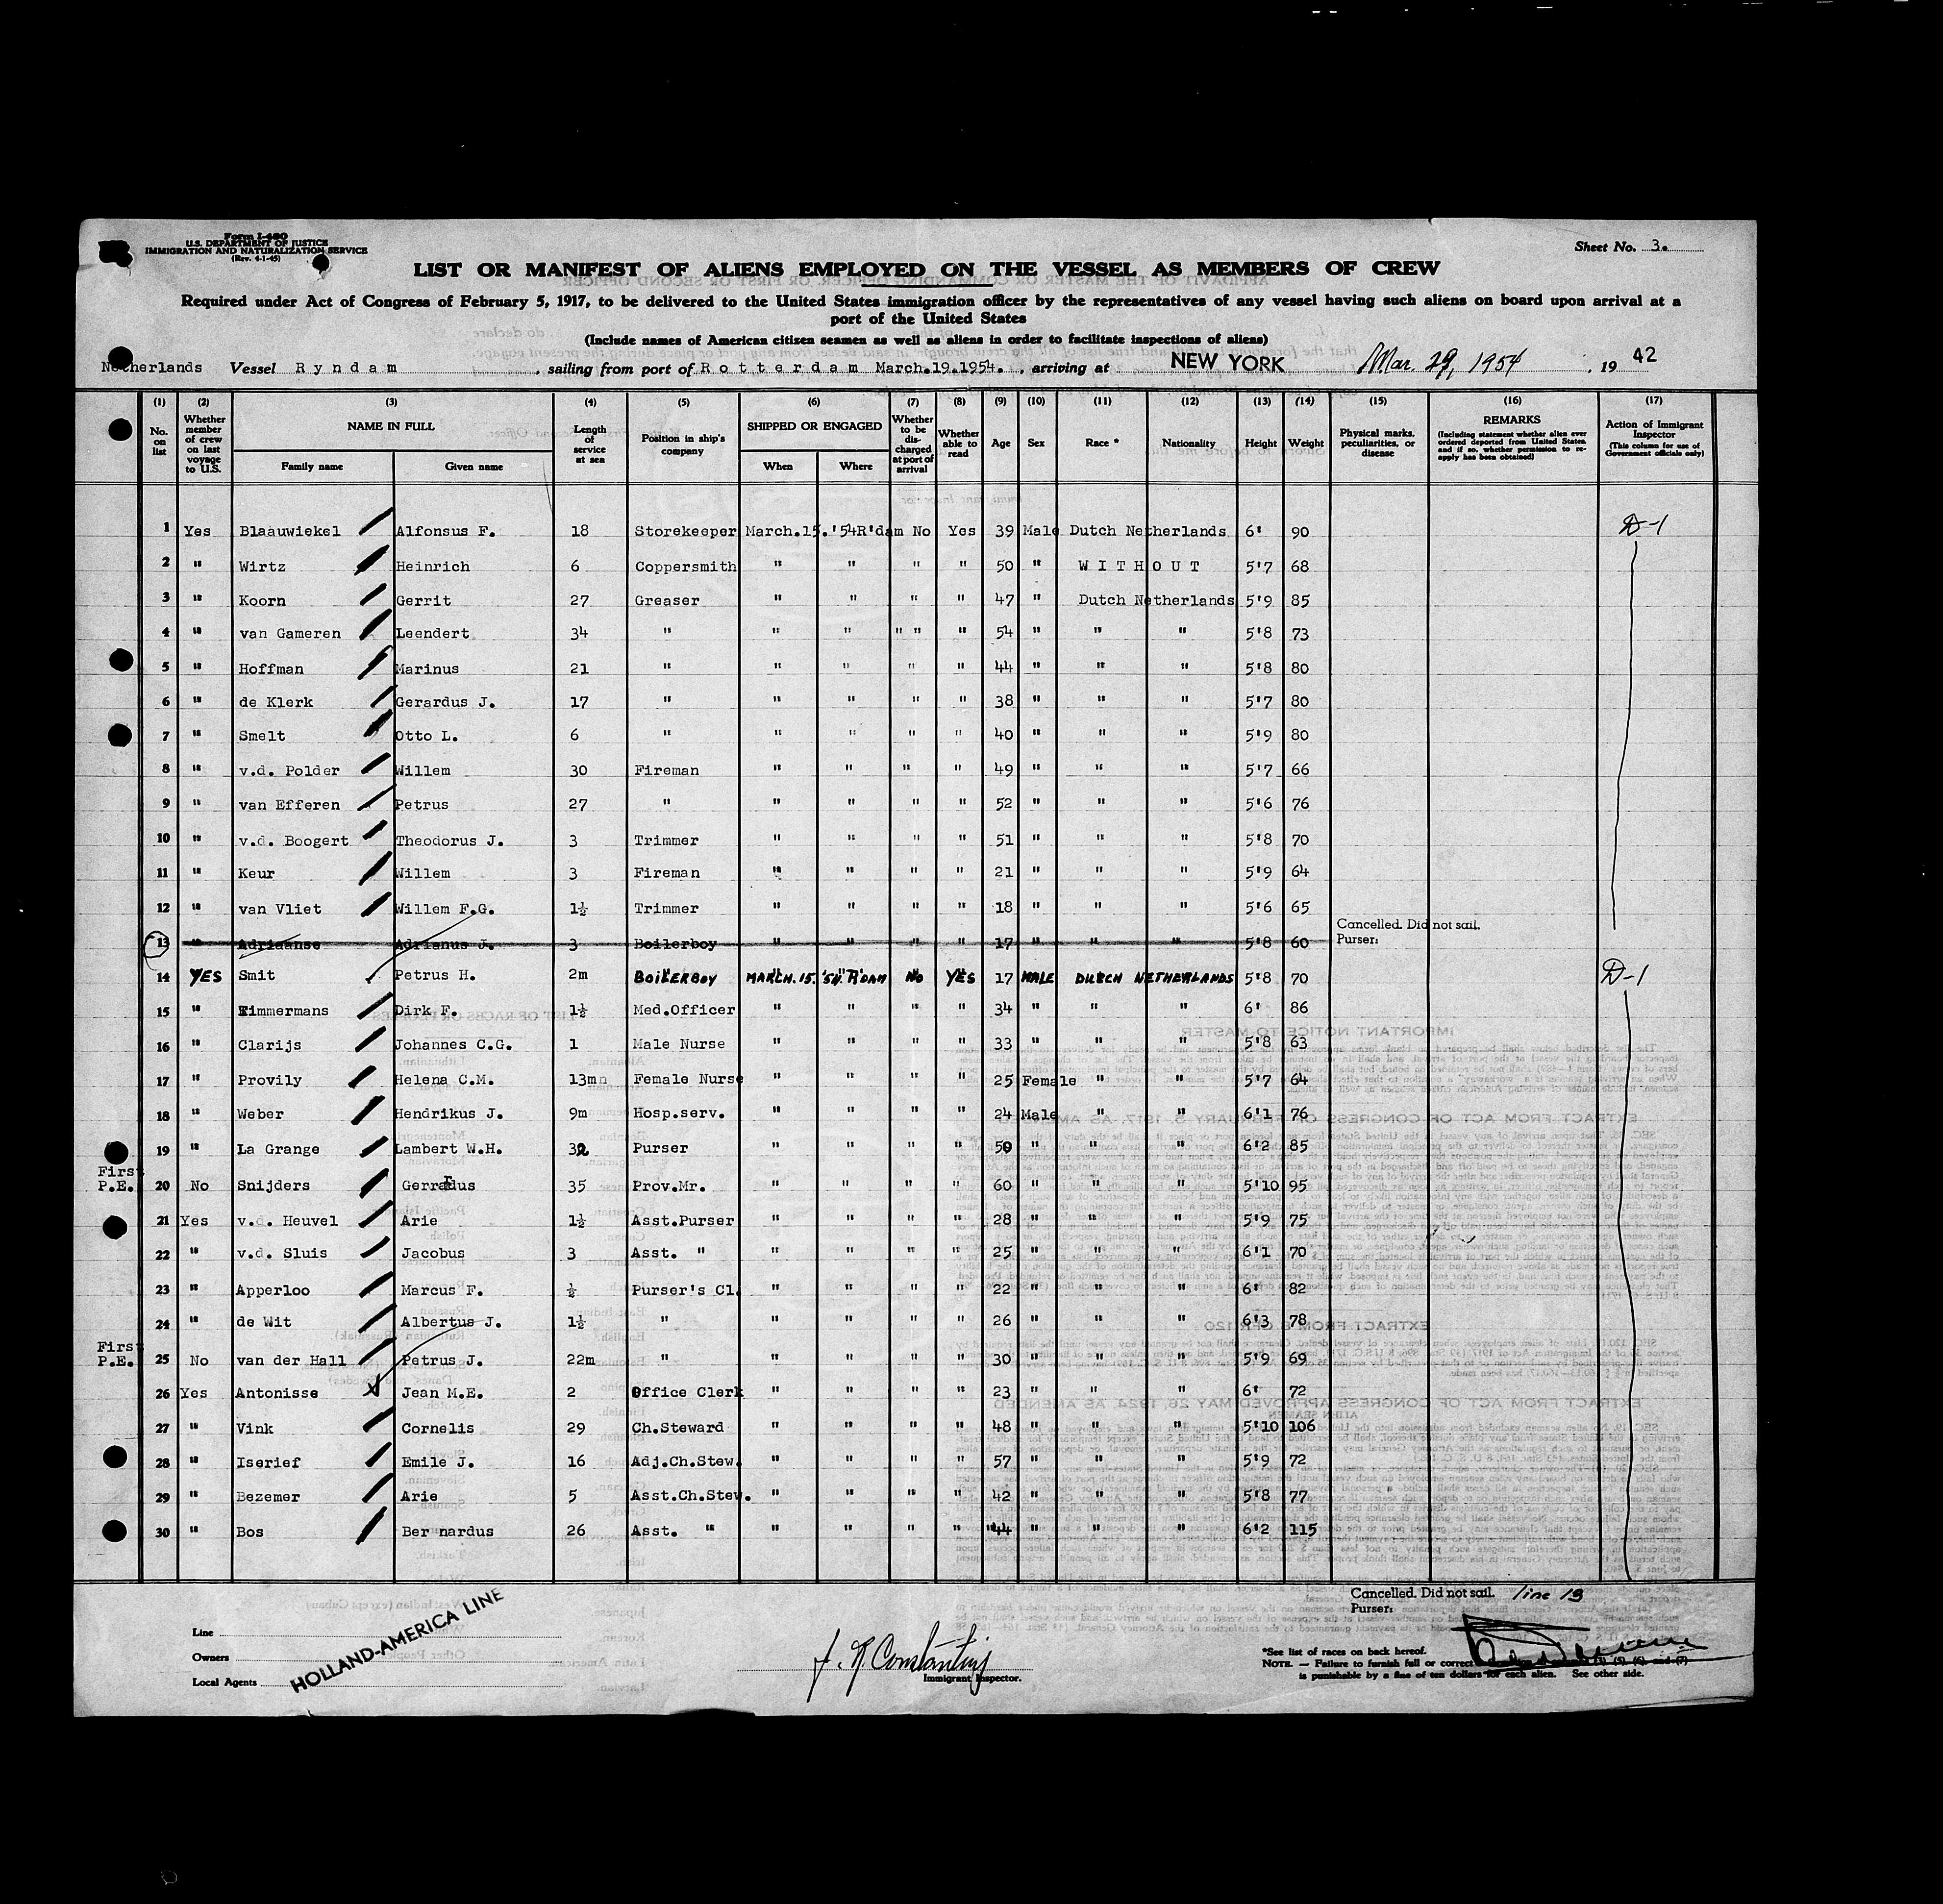 Form I-480
U.S. DEPARTMENT OF JUSTICE
IMMIGRATION AND NATURALIZATION SERVICE
(Rev. 4-1-45)
Sheet No. 3.
LIST OR MANIFEST OF ALIENS EMPLOYED ON THE VESSEL AS MEMBERS OF CREW
Required under Act of Congress of February 5, 1917, to be delivered to the United States immigration officer by the representatives of any vessel having such aliens on board upon arrival at a
port of the United States
(Include names of American citizen seamen as well as aliens in order to facilitate inspections of aliens)
Netherlands Vessel Ryndam, sailing from port of Rotterdam March.19.1954., arriving at NEW YORK Mar. 29, 1954, 19 42
(1) (2) (3) (4) (5) (6) (7) (8) (9) (10) (11) (12) (13) (14) (15) (16) (17)
No. on list Whether member of crew on last voyage to U.S. NAME IN FULL Family name Given name Length of service at sea Position in ship's company SHIPPED OR ENGAGED When Where Whether to be discharged at port of arrival Whether able to read Age Sex Race * Nationality Height Weight Physical marks, peculiarities, or disease REMARKS (Including statement whether alien ever ordered deported from United States, and if so, whether permission to reapply has been obtained) Action of Immigrant Inspector (This column for use of Government officials only)
1 Yes Blaauwiekel Alfonsus F. 18 Storekeeper March.15.'54 R'dam No Yes 39 Male Dutch Netherlands 6' 90 D-1
2 " Wirtz Heinrich 6 Coppersmith " " " " 50 " WITHOUT 5'7 68
3 " Koorn Gerrit 27 Greaser " " " " 47 " Dutch Netherlands 5'9 85
4 " van Gameren Leendert 34 " " " " " " 54 " " " 5'8 73
5 " Hoffman Marinus 21 " " " " " 44 " " " 5'8 80
6 " de Klerk Gerardus J. 17 " " " " " 38 " " " 5'7 80
7 " Smelt Otto L. 6 " " " " " 40 " " " 5'9 80
8 " v.d. Polder Willem 30 Fireman " " " " 49 " " " 5'7 66
9 " van Efferen Petrus 27 " " " " " 52 " " " 5'6 76
10 " v.d. Boogert Theodorus J. 3 Trimmer " " " " 51 " " " 5'8 70
11 " Keur Willem 3 Fireman " " " " 21 " " " 5'9 64
12 " van Vliet Willem F.G. 1½ Trimmer " " " " 18 " " " 5'6 65
13 " Adriaanse Adrianus J. 3 Boilerboy " " " " 17 " " " 5'8 60 Cancelled. Did not sail.
Purser:
14 YES Smit Petrus H. 2m BOILERBOY MARCH.15.'54. R'DAM NO YES 17 MALE DUTCH NETHERLANDS 5'8 70 D-1
15 " Zimmermans Dirk F. 1½ Med.Officer " " " " 34 " " " 6' 86
16 " Clarijs Johannes C.G. 1 Male Nurse " " " " 33 " " " 5'8 63
17 " Provily Helena C.M. 13mn Female Nurse " " " " 25 Female " " 5'7 64
18 " Weber Hendrikus J. 9m Hosp.serv. " " " " 24 Male " " 6'1 76
19 " La Grange Lambert W.H. 32 Purser " " " " 50 " " " 6'2 85
First
P.E. 20 No Snijders Gerradus 35 Prov.Mr. " " " " 60 " " " 5'10 95
21 Yes v.d. Heuvel Arie 1½ Asst.Purser " " " " 28 " " " 5'9 75
22 " v.d. Sluis Jacobus 3 Asst. " " " " " 25 " " " 6'1 70
23 " Apperloo Marcus F. ½ Purser's Cl. " " " " 22 " " " 6' 82
24 " de Wit Albertus J. 1½ " " " " " 26 " " " 6'3 78
First
P.E. 25 No van der Hall Petrus J. 22m " " " " " 30 " " " 5'9 69
26 Yes Antonisse Jean M.E. 2 Office Clerk " " " " 23 " " " 6' 72
27 " Vink Cornelis 29 Ch.Steward " " " " 48 " " " 5'10 106
28 " Iserief Emile J. 16 Adj.Ch.Stew. " " " " 57 " " " 5'9 72
29 " Bezemer Arie 5 Asst.Ch.Stew. " " " " 42 " " " 5'8 77
30 " Bos Ber nardus 26 Asst. " " " " " 44 " " " 6'2 115
Cancelled. Did not sail. line 13
Purser:
Line
Owners
Local Agents
HOLLAND-AMERICA LINE
Immigrant Inspector.
*See list of races on back hereof.
NOTE. — Failure to furnish full or correct
is punishable by a fine of ten dollars for each alien. See other side.